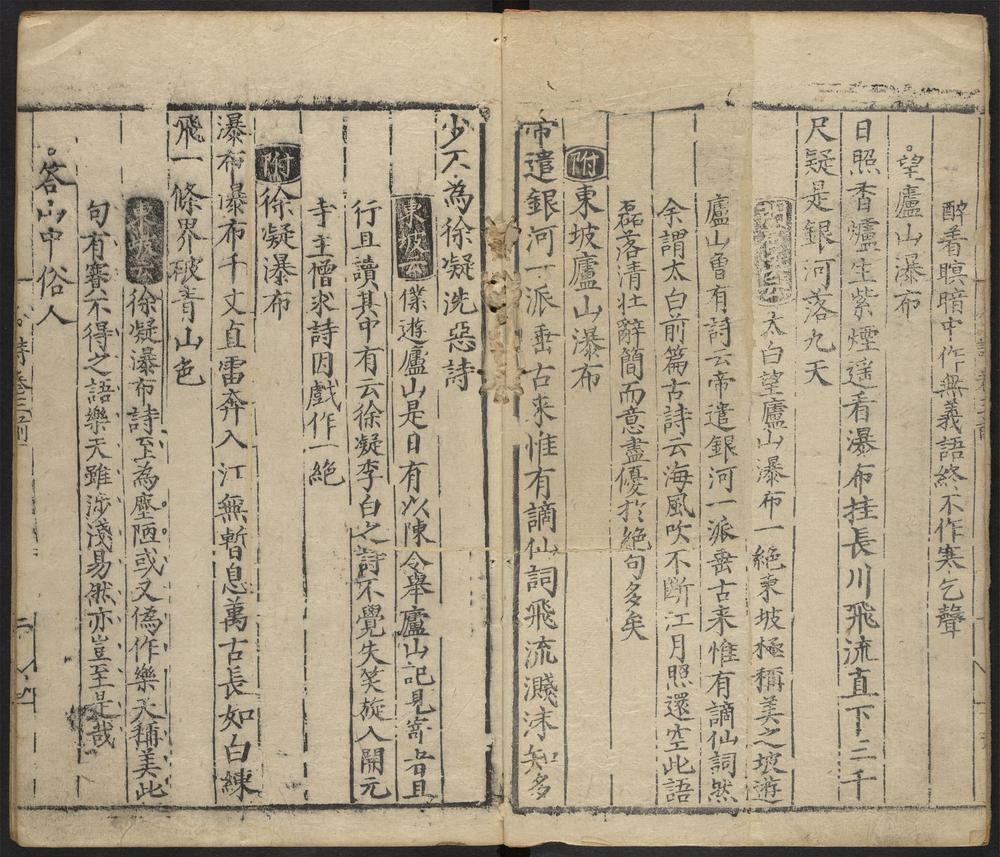 醉看暝暗中作無義語終不作寒乞聲
望廬山瀑布
日照香爐生紫煙遥看瀑布挂長川飛流直下三千
尺疑是銀河落九天
太白望廬山瀑布一絶東坡極稱美之坡遊
廬山曽有詩云帝遣銀河一派垂古来惟有謫仙詞然
余謂太白前篇古詩云海風吹不斷江月照還空此語
磊落清壮辭簡而意盡優於絶句多矣
附東坡廬山瀑布
帝遣銀河一派垂古来惟有謫仙詞飛流濺沫知多
少不為徐凝洗惡詩
東坡云僕遊廬山是日有以陳令舉廬山記見寄者且
行且讀其中有云徐凝李白之詩不覺失笑旋入開元
寺主僧求詩因戲作一絶
附徐凝瀑布
瀑布瀑布千丈直雷奔入江無暫息萬古長如白練
飛一條界破青山色
東坡云徐凝瀑布詩至為塵陋或又偽作樂天稱美此
句有賽不得之語樂天雖涉淺易然亦豈至是哉
答山中俗人